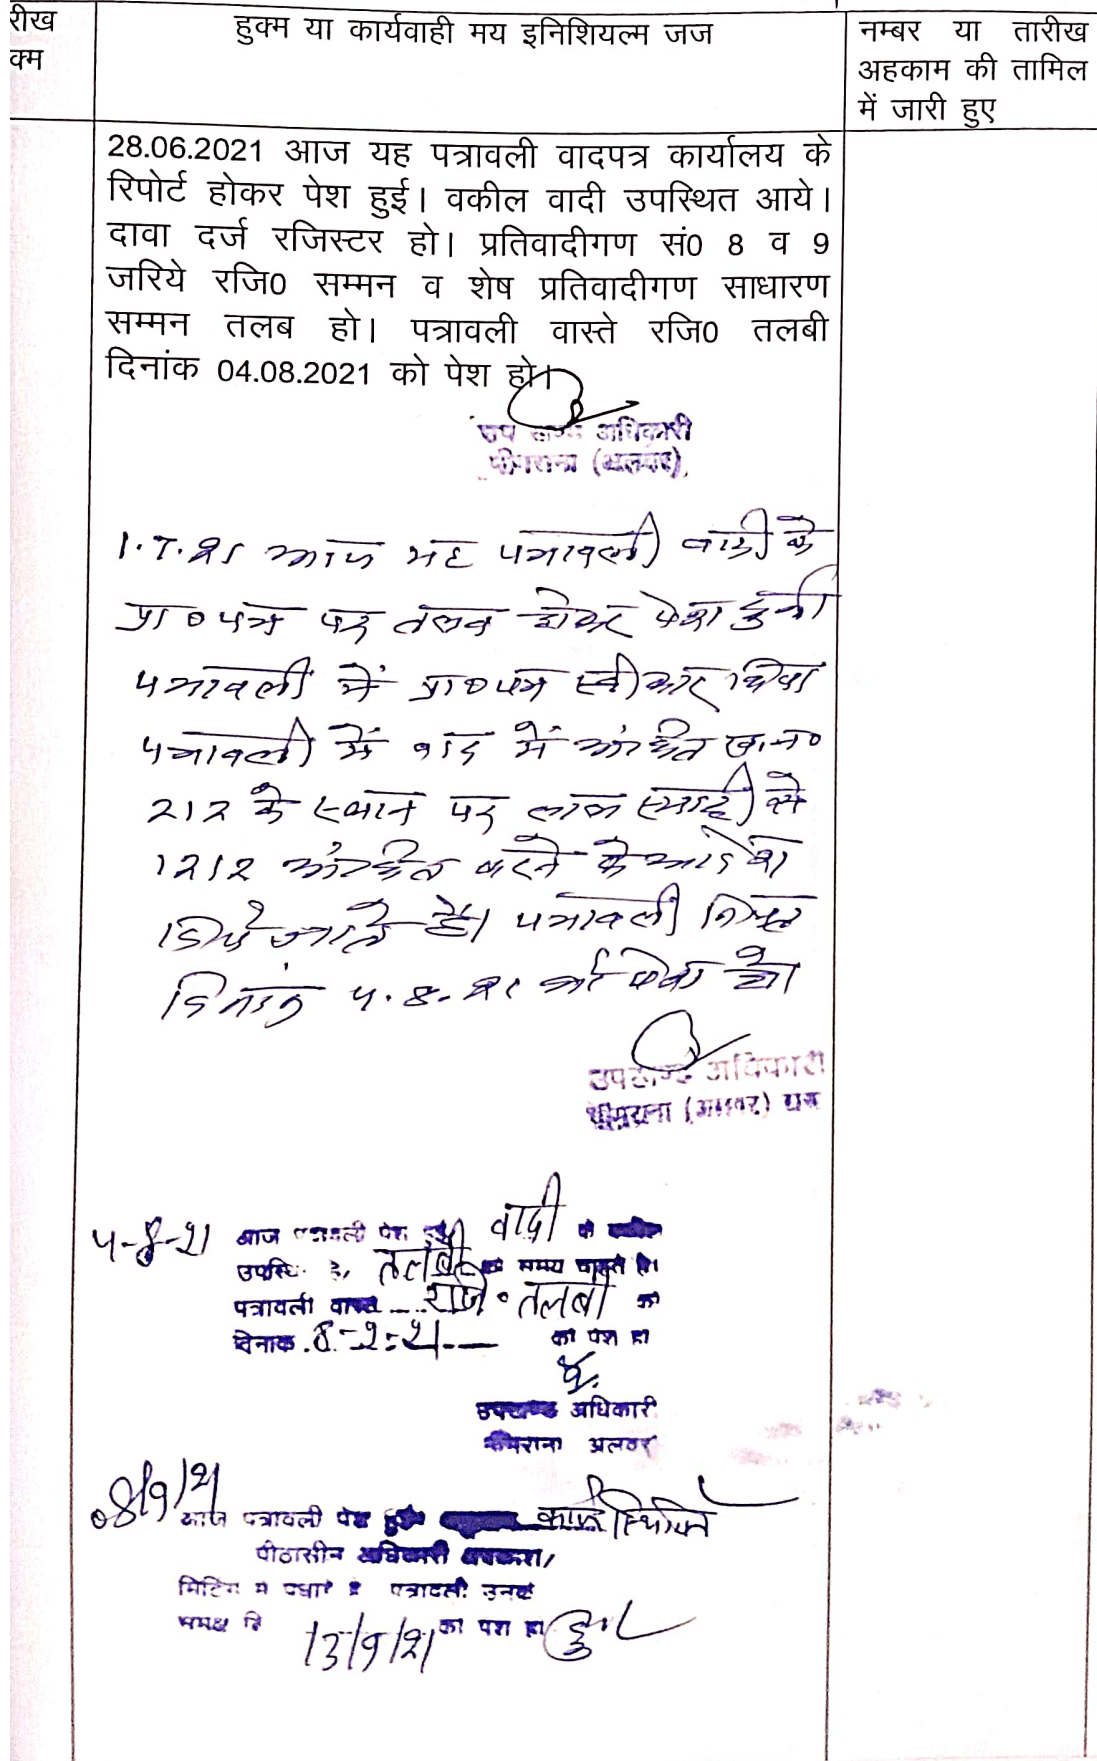 रीख
क्म
हुक्म या कार्यवाही मय इनिशियल्म जज
नम्बर या तारीख
अहकाम की तामिल
में जारी हुए
28.06.2021 आज यह पत्रावली वादपत्र कार्यालय के
रिपोर्ट होकर पेश हुई। वकील वादी उपस्थित आये।
दावा दर्ज रजिस्टर हो। प्रतिवादीगण सं0 8 व 9
जरिये रजि0 सम्मन व शेष प्रतिवादीगण साधारण
सम्मन तलब हो। पत्रावली वास्ते रजि0 तलबी
दिनांक 04.08.2021 को पेश हो।
उप खण्ड अधिकारी
नीमराना (अलवर)
1.7.21 आज यह पत्रावली वादी के
प्रा0पत्र पर तलब होकर पेश हुयी
पत्रावली में प्रा0पत्र स्वीकार किया
पत्रावली में वाद में अंकित ख.न०
212 के स्थान पर लाल स्याही से
1212 अंकित करने के आदेश
दिये जाते है। पत्रावली नियत
दिनांक 4.8.21 को पेश हो
उपखण्ड अधिकारी
नीमराना (अलवर) राज
4-8-21 आज पत्रावली पेश हुई वादी के
उपस्थि है, तलबी को समय चाहते है।
पत्रावली वास्ते रजि० तलबी को
दिनांक 8-9-21 को पेश हो
उपखण्ड अधिकारी
नीमराना अलवर
08/9/21
आज पत्रावली पेश हुई कार्य स्थगित
पीठासीन अधिकारी अवकाश/
मिटिंग में पधारे है पत्रावली उनके
समक्ष दि 13/9/21 को पेश हो